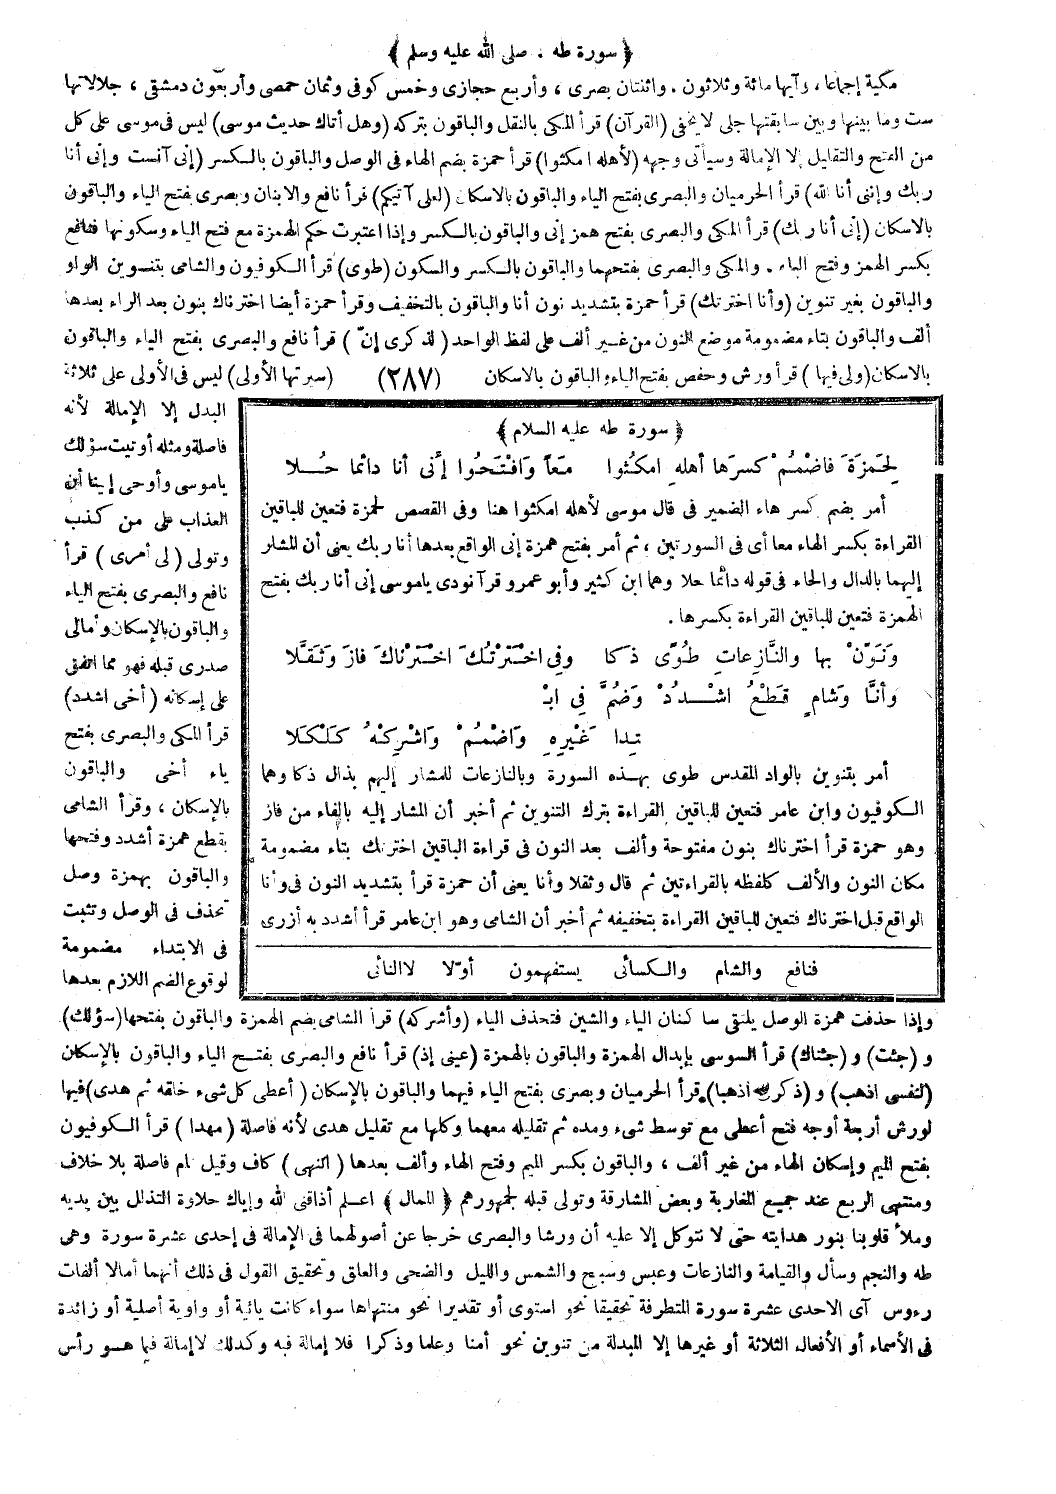 ﴿ سورة طه . صلى الله عليه وسلم ﴾
مكية إجماعا ، وآيها مائة وثلاثون . واثنتان بصرى ، وأربع حجازى وخمس كوفى وثمان حمصى وأربعون دمشقى ، جلالاتها
ست وما بينها وبين سابقتها جلى لا يخفى (القرآن) قرأ المكى بالنقل والباقون بتركه (وهل أتاك حديث موسى) ليس فى موسى على كل
من الفتح والتقليل إلا الإمالة وسيأتى وجهه (لأهله امكثوا) قرأ حمزة بضم الهاء فى الوصل والباقون بالكسر (إنى آنست وإنى أنا
ربك وإننى أنا الله) قرأ الحرميان والبصرى بفتح الياء والباقون بالاسكان (لعلى آتيكم) قرأ نافع والابنان وبصرى بفتح الياء والباقون
بالاسكان (إنى أنا ربك) قرأ المكى والبصرى بفتح همز إنى والباقون بالكسر وإذا اعتبرت حكم الهمزة مع فتح الياء وسكونها فنافع
بكسر الهمز وفتح الياء . والمكى والبصرى بفتحهما والباقون بالكسر والسكون (طوى) قرأ الكوفيون والشامى بتنوين الواو
والباقون بغير تنوين (وأنا اخترتك) قرأ حمزة بتشديد نون أنا والباقون بالتخفيف وقرأ حمزة أيضا اخترناك بنون بعد الراء بعدها
ألف والباقون بتاء مضمومة موضع النون من غير ألف على لفظ الواحد ( لذكرى إنّ ) قرأ نافع والبصرى بفتح الياء والباقون
بالاسكان (ولى فيها ) قرأ ورش وحفص بفتح الياء والباقون بالاسكان (٢٨٧) (سيرتها الأولى) ليس فى الأولى على ثلاثة
البدل إلا الإمالة لأنه
فاصلة ومثله أوتيت سؤلك
ياموسى وأوحى إلينا أن
العذاب على من كذب
وتولى ( لى أمرى ) قرأ
نافع والبصرى بفتح الياء
والباقون بالإسكان وأمالى
صدرى قبله فهو مما اتفق
على إسكانه ( أخى اشدد )
قرأ المكى والبصرى بفتح
ياء أخى والباقون
بالإسكان ، وقرأ الشامى
بقطع همزة أشدد وفتحها
والباقون بهمزة وصل
تحذف فى الوصل وتثبت
فى الابتداء مضمومة
لوقوع الضم اللازم بعدها
﴿ سورة طه عليه السلام ﴾
لِحَمْزَةَ فَاضْمُمْ كَسرَها أهلِهِ امكُثُوا مَعًا وَافْتَحُوا إنّى أنا دائما حُلا
أمر بضم كسر هاء الضمير فى قال موسى لأهله امكثوا هنا وفى القصص لحمزة فتعين للباقين
القراءة بكسر الهاء معا أى فى السورتين ، ثم أمر بفتح همزة إنى الواقع بعدها أنا ربك يعنى أن المشار
إليهما بالدال والحاء فى قوله دائما حلا وهما ابن كثير وأبو عمرو قرآ نودى ياموسى إنى أنا ربك بفتح
الهمزة فتعين للباقين القراءة بكسرها .
وَنَوّنْ بها والنَّازِعاتِ طُوًى ذَكا وفِى اخْتَرْتُكَ اخْتَرْناكَ فازَ وَثَقَّلا
وأنَّا وَشامٍ قَطْعُ اشْدُدْ وَضُمَّ فِى ابْـ
تِدا غَيْرِهِ وَاضْمُمْ وَأشْرِكْهُ كَلْكَلا
أمر بتنوين بالواد المقدس طوى بهذه السورة وبالنازعات للمشار إليهم بذال ذكا وهما
الكوفيون وابن عامر فتعين للباقين القراءة بترك التنوين ثم أخبر أن المشار إليه بالفاء من فاز
وهو حمزة قرأ اخترناك بنون مفتوحة وألف بعد النون فى قراءة الباقين اخترتك بتاء مضمومة
مكان النون والألف كلفظه بالقراءتين ثم قال وثقلا وأنا يعنى أن حمزة قرأ بتشديد النون فى وأنا
الواقع قبل اخترناك فتعين للباقين القراءة بتخفيفه ثم أخبر أن الشامى وهو ابن عامر قرأ أشدد به أزرى
فنافع والشام والكسائى يستفهمون أوّلا لا النائى
وإذا حذفت همزة الوصل يلتقى ساكنان الياء والشين فتحذف الياء (وأشركه) قرأ الشامى بضم الهمزة والباقون بفتحها (سؤلك)
و (جئت) و (جئناك) قرأ السوسى بإبدال الهمزة والباقون بالهمزة (عينى إذ) قرأ نافع والبصرى بفتح الياء والباقون بالإسكان
(لنفسى اذهب) و (ذكرى اذهبا) قرأ الحرميان وبصرى بفتح الياء فيهما والباقون بالإسكان ( أعطى كل شىء خلقه ثم هدى) فيها
لورش أربعة أوجه فتح أعطى مع توسط شىء ومده ثم تقليله معهما وكلها مع تقليل هدى لأنه فاصلة ( مهدا ) قرأ الكوفيون
بفتح الميم وإسكان الهاء من غير ألف ، والباقون بكسر الميم وفتح الهاء وألف بعدها ( النهى ) كاف وقيل تام فاصلة بلا خلاف
ومنتهى الربع عند جميع المغاربة وبعض المشارقة وتولى قبله لجمهورهم ﴿ الممال ﴾ اعلم أذاقنى الله وإياك حلاوة التذلل بين يديه
وملأ قلوبنا بنور هدايته حتى لا نتوكل إلا عليه أن ورشا والبصرى خرجا عن أصولهما فى الإمالة فى إحدى عشرة سورة وهى
طه والنجم وسأل والقيامة والنازعات وعبس وسبح والشمس والليل والضحى والعلق وتحقيق القول فى ذلك أنهما أمالا ألفات
رءوس آى الاحدى عشرة سورة المتطرفة تحقيقا نحو استوى أو تقديرا نحو منتهاها سواء كانت يائية أو واوية أصلية أو زائدة
فى الأسماء أو الأفعال الثلاثة أو غيرها إلا المبدلة من تنوين نحو أمتا وعلما وذكرا فلا إمالة فيه وكذلك لا إمالة فيما هو رأس